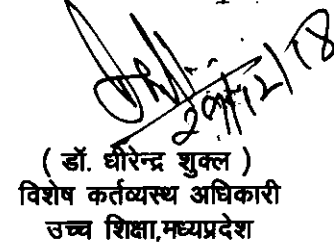 29/12/18
( डॉ. धीरेन्द्र शुक्ल )
विशेष कर्तव्यस्थ अधिकारी
उच्च शिक्षा,मध्यप्रदेश